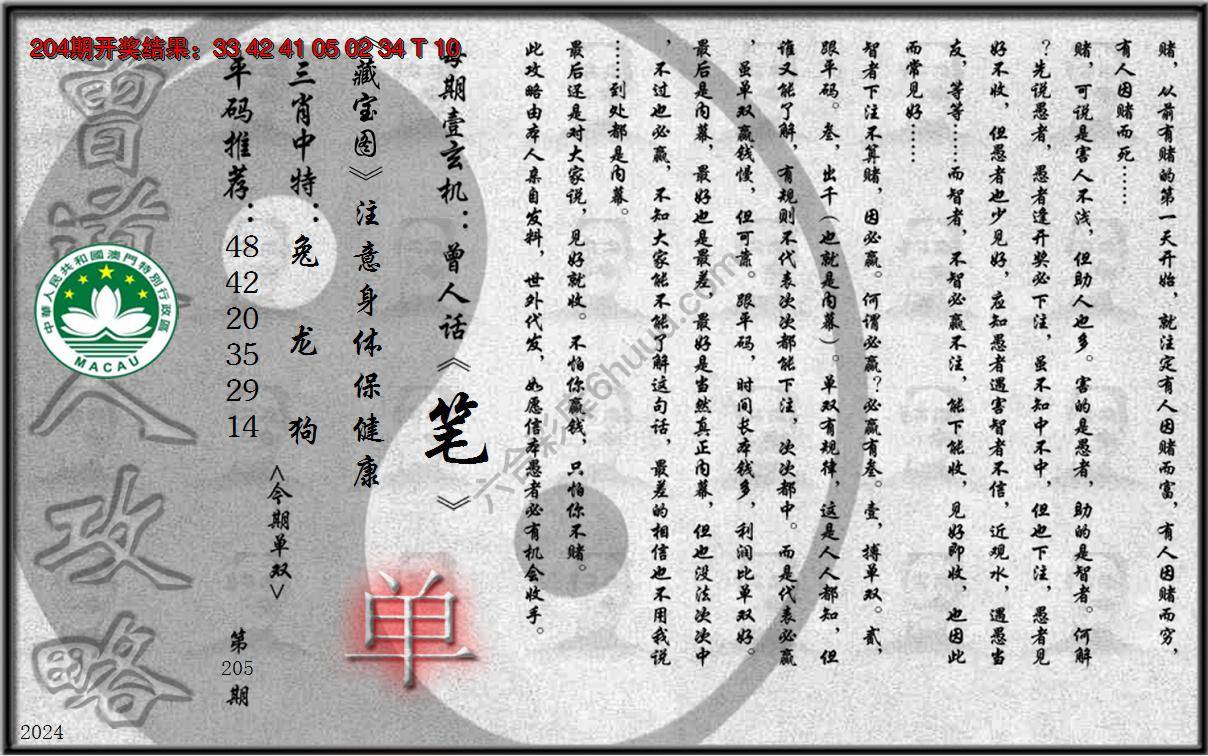 204期开奖结果：33 42 41 05 02 34 T 10
赌，从前有赌的第一天开始，就注定有人因赌而富，有人因赌而穷，
有人因赌而死……
赌，可说是害人不浅，但助人也多。害的是愚者，助的是智者。何解
？先说愚者，愚者逢开奖必下注，虽不知中不中，但也下注，愚者见
好不收，但愚者也少见好，应知愚者遇害智者不信，近观水，遇愚当
友，等等……而智者，不智必赢不注，能下能收，见好即收，也因此
而常见好……
智者下注不算赌，因必赢。何谓必赢？必赢有叁。壹，搏单双。贰，
跟平码。叁，出千（也就是内幕）。单双有规律，这是人人都知，但
谁又能了解，有规则不代表次次都能下注，次次都中。而是代表必赢
，虽单双赢钱慢，但可靠。跟平码，时间长本钱多，利润比单双好。
最后是内幕，最好也是最差，最好是当然真正内幕，但也没法次次中
，不过也必赢，不知大家能不能了解这句话，最差的相信也不用我说
……到处都是内幕。
最后还是对大家说，见好就收。不怕你赢钱，只怕你不赌。
此攻略由本人亲自发料，世外代发，如愿信本愚者必有机会收手。
每期壹玄机：曾人话《笔》
《藏宝图》注意身体保健康
三肖中特：兔 龙 狗
平码推荐：48 42 20 35 29 14
<今期单双>
单
第205期
曾道人攻略
中華人民共和國澳門特別行政區
MACAU
六合彩库6huuu.com
2024